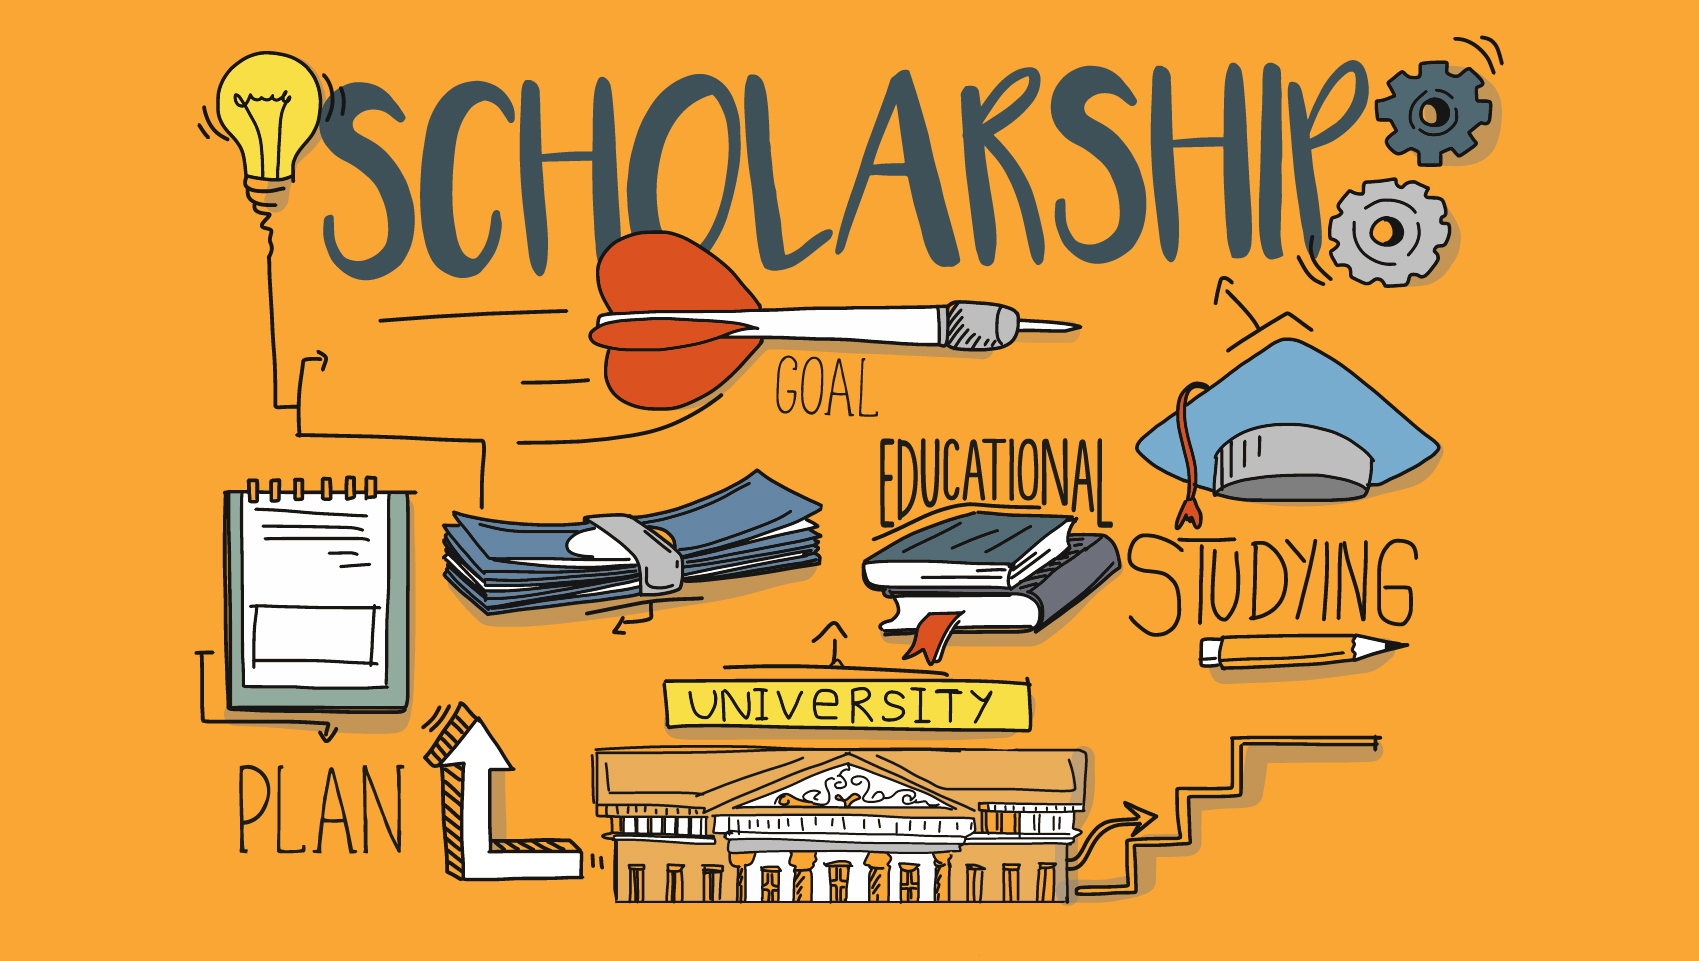 SCHOLARSHIP
GOAL
EDUCATIONAL
STUDYING
UNIVeRSITY
PLAN